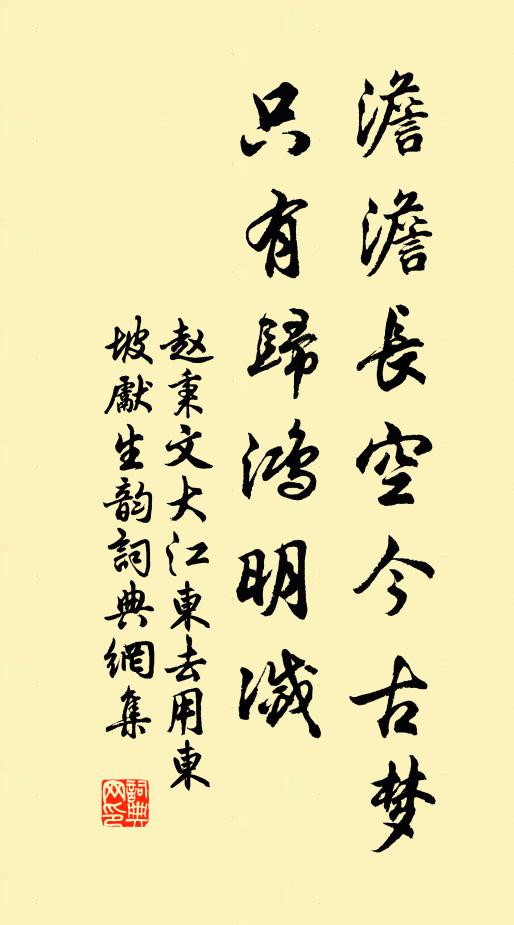 澹澹長空今古梦
只有歸鴻明滅
赵秉文大江東去用東
坡獻生韵詞典網集
詞典网印